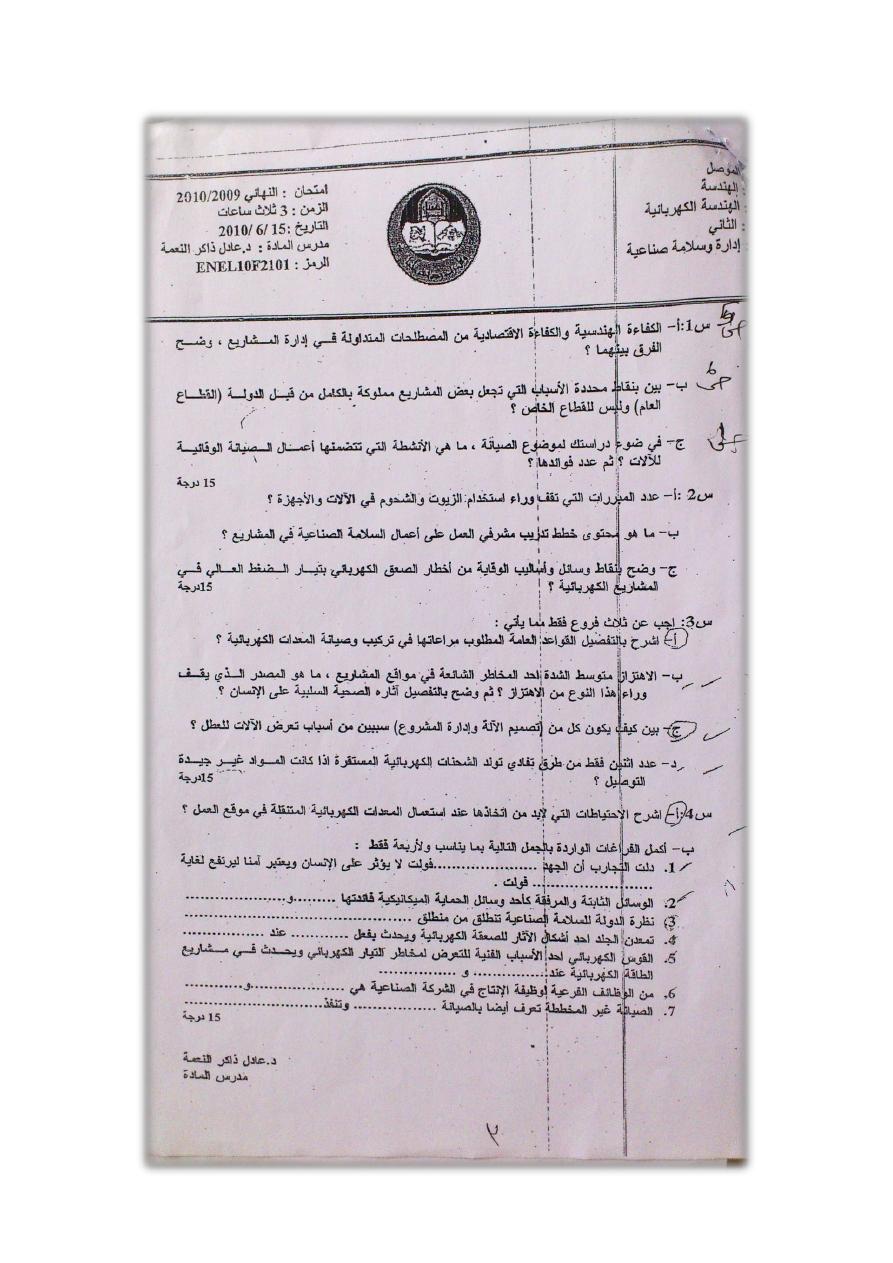 الموصل
الهندسة
الهندسة الكهربائية
: الثاني
: إدارة وسلامة صناعية
امتحان : النهائي 2010/2009
الزمن : 3 ثلاث ساعات
التاريخ : 15/ 6 /2010
مدرس المادة : د.عادل ذاكر النعمة
الرمز : ENEL10F2101
س1:أ- الكفاءة الهندسية والكفاءة الاقتصادية من المصطلحات المتداولة في إدارة المشاريع ، وضح
الفرق بينهما ؟
ب- بين بنقاط محددة الأسباب التي تجعل بعض المشاريع مملوكة بالكامل من قبل الدولة (القطاع
العام) وليس للقطاع الخاص ؟
ج- في ضوء دراستك لموضوع الصيانة ، ما هي الأنشطة التي تتضمنها أعمال الصيانة الوقائية
للآلات ؟ ثم عدد فوائدها؟
15 درجة
س2 :أ- عدد المبررات التي تقف وراء استخدام الزيوت والشحوم في الآلات والأجهزة ؟
ب- ما هو محتوى خطط تدريب مشرفي العمل على أعمال السلامة الصناعية في المشاريع ؟
ج- وضح بنقاط وسائل وأساليب الوقاية من أخطار الصعق الكهربائي بتيار الضغط العالي في
المشاريع الكهربائية ؟
15درجة
س3: اجب عن ثلاث فروع فقط مما يأتي :
أ- اشرح بالتفصيل القواعد العامة المطلوب مراعاتها في تركيب وصيانة المعدات الكهربائية ؟
ب- الاهتزاز متوسط الشدة احد المخاطر الشائعة في مواقع المشاريع ، ما هو المصدر الذي يقف
وراء هذا النوع من الاهتزاز ؟ ثم وضح بالتفصيل آثاره الصحية السلبية على الإنسان ؟
ج- بين كيف يكون كل من (تصميم الآلة وإدارة المشروع) سببين من أسباب تعرض الآلات للعطل ؟
د- عدد اثنين فقط من طرق تفادي تولد الشحنات الكهربائية المستقرة اذا كانت المواد غير جيدة
التوصيل ؟
15درجة
س4:أ- اشرح الاحتياطات التي لابد من اتخاذها عند استعمال المعدات الكهربائية المتنقلة في موقع العمل ؟
ب- أكمل الفراغات الواردة بالجمل التالية بما يناسب ولأربعة فقط :
1. دلت التجارب أن الجهد ....................فولت لا يؤثر على الإنسان ويعتبر آمنا ليرتفع لغاية
.................... فولت .
2. الوسائل الثابتة والمرفقة كأحد وسائل الحماية الميكانيكية فائدتها ..........و....................
3. نظرة الدولة للسلامة الصناعية تنطلق من منطلق ........................................
4. تمعدن الجلد احد أشكال الآثار للصعقة الكهربائية ويحدث بفعل ............ عند ................
5. القوس الكهربائي احد الأسباب الفنية للتعرض لمخاطر التيار الكهربائي ويحدث في مشاريع
الطاقة الكهربائية عند................ و ................
6. من الوظائف الفرعية لوظيفة الإنتاج في الشركة الصناعية هي ..................و...............
7. الصيانة غير المخططة تعرف أيضا بالصيانة ................ وتنفذ.........................
15 درجة
د.عادل ذاكر النعمة
مدرس المادة
٣